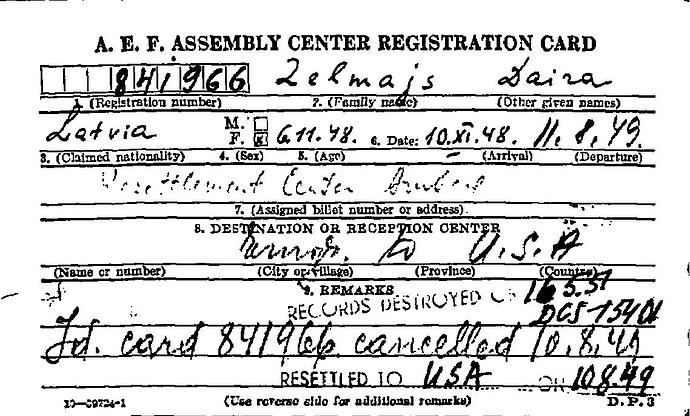 A. E. F. ASSEMBLY CENTER REGISTRATION CARD
841966 Zelmajs Daira
1. (Registration number) 2. (Family name) (Other given names)
Latvia M. F. x 6.11.48. 6. Date: 10.XI.48. 11.8.49.
3. (Claimed nationality) 4. (Sex) 5. (Age) (Arrival) (Departure)
Resettlement Center
7. (Assigned billet number or address)
8. DESTINATION OR RECEPTION CENTER
to U.S.A
(Name or number) (City or village) (Province) (Country)
9. REMARKS
RECORDS DESTROYED 16.5.51
Id. card 841966 cancelled 10.8.49
RESETTLED TO USA ON 10.8.49
16—39724-1 (Use reverse side for additional remarks) D.P.3